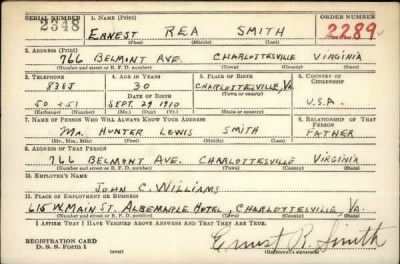 SERIAL NUMBER 1. NAME (Print) ORDER NUMBER
2348 ERNEST REA SMITH 2289
(First) (Middle) (Last)
2. ADDRESS (Print)
766 BELMONT AVE. CHARLOTTESVILLE VIRGINIA
(Number and street or R. F. D. number) (Town) (County) (State)
3. TELEPHONE 4. AGE IN YEARS 5. PLACE OF BIRTH 6. COUNTRY OF CITIZENSHIP
838J 30 CHARLOTTESVILLE, VA.
DATE OF BIRTH (Town or county)
SEPT. 29 1910 U.S.A.
(Exchange) (Number) (Mo.) (Day) (Yr.) (State or country)
7. NAME OF PERSON WHO WILL ALWAYS KNOW YOUR ADDRESS 8. RELATIONSHIP OF THAT PERSON
MR. HUNTER LEWIS SMITH FATHER
(Mr., Mrs., Miss) (First) (Middle) (Last)
9. ADDRESS OF THAT PERSON
766 BELMONT AVE. CHARLOTTESVILLE VIRGINIA
(Number and street or R. F. D. number) (Town) (County) (State)
10. EMPLOYER'S NAME
JOHN C. WILLIAMS
11. PLACE OF EMPLOYMENT OR BUSINESS
615 W. MAIN ST. ALBEMARLE HOTEL, CHARLOTTESVILLE VA.
(Number and street or R. F. D. number) (Town) (County) (State)
I AFFIRM THAT I HAVE VERIFIED ABOVE ANSWERS AND THAT THEY ARE TRUE.
REGISTRATION CARD
D. S. S. Form 1 (over) Ernest R. Smith
(Registrant's signature)